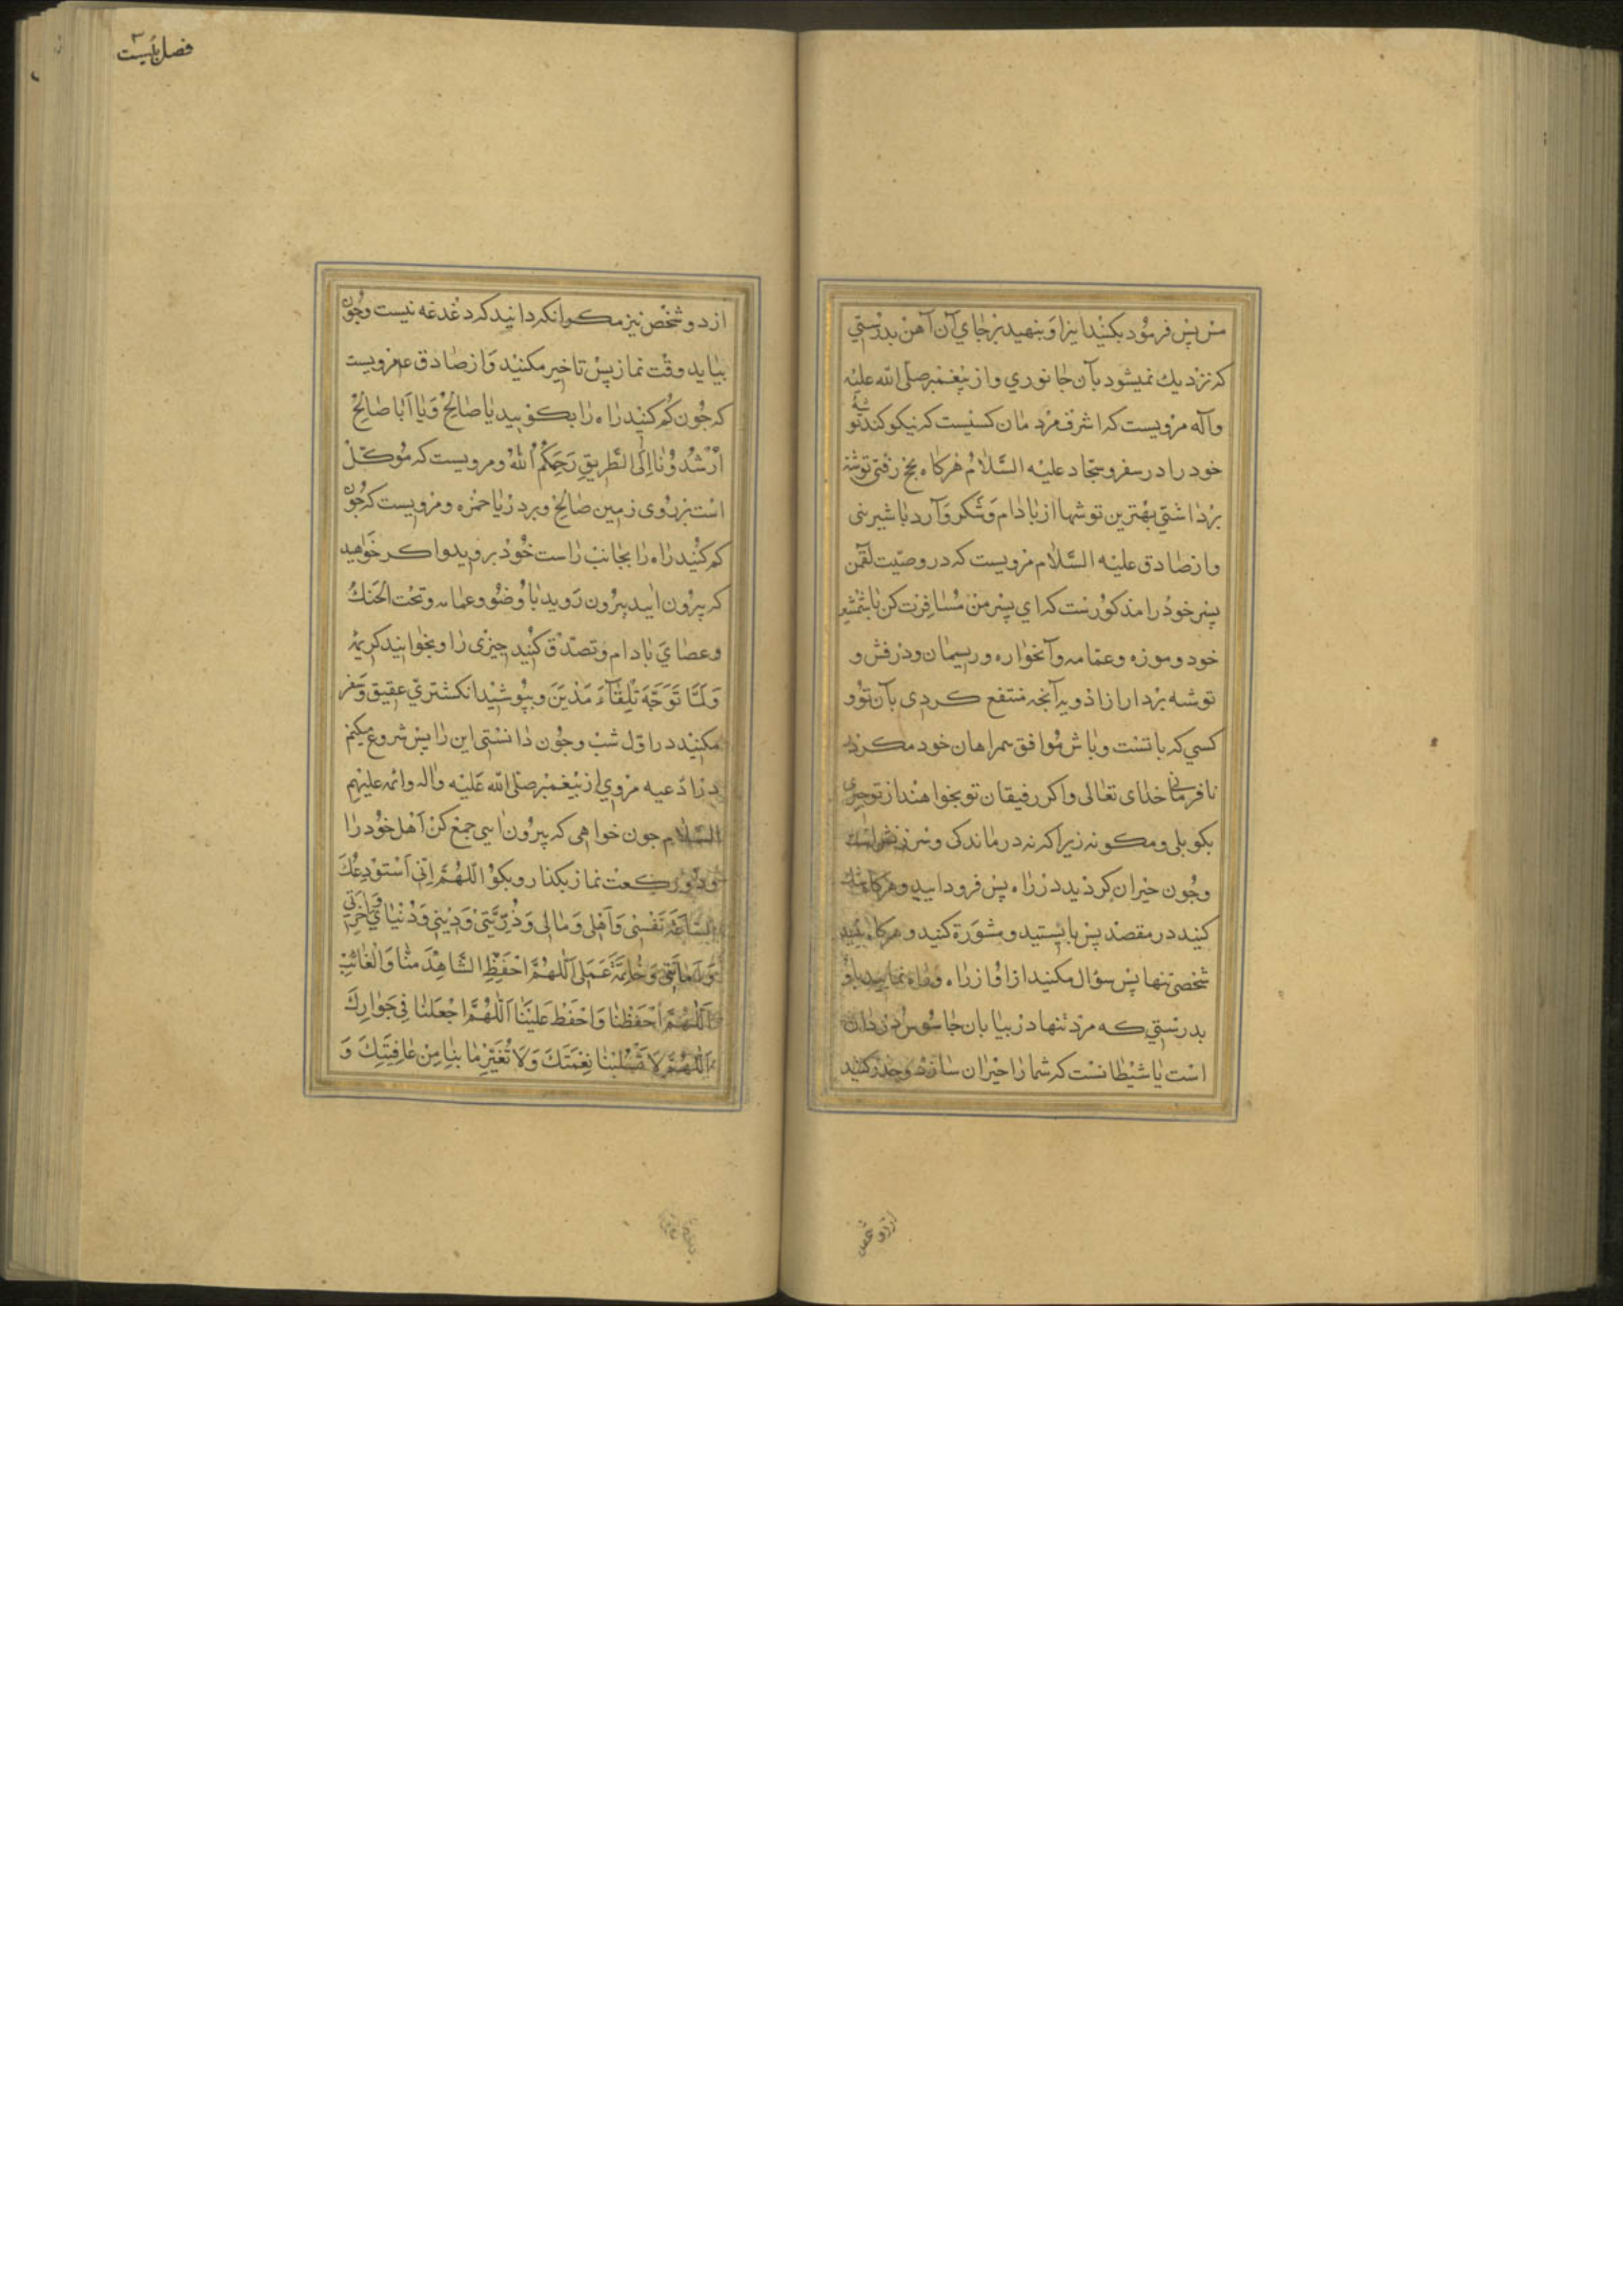 مس پس فرمود بکنید اینرا و بنهید بر جاي آن آهن بدرستي
که نزدیك نمیشود بآن جانوري و از پیغمبر صلّی الله علیه
وآله مرویست که اشرف مردمان کسیست که نیکو کند توشهٔ
خود را در سفر و سجّاد علیه السّلام هرکاه بحج رفتی توشه
برداشتي بهترین توشها از بادام و شکر و آرد با شیرینی
و از صادق علیه السّلام مرویست که در وصیّت لقمن
پسر خود را مذکورست که اي پسر من مسافرت کن با شمشیر
خود و موزه و عمّامه و آبخواره و ریسمان و درفش و
توشه بردار از ادویه آنجه منتفع کردی بآن تو و
کسي که با تست و باش موافق همراهان خود مکر در
نافرمانی خدای تعالی و اکر رفیقان تو بخواهند از تو جیزی
بکو بلی و مکو نه زیرا که نه درماندکی و سرزنش است
وجون حیران کردید در راه پس فرود آیید و هرکاه شك
کنید در مقصد پس بایستید و مشورة کنید و هرکاه بینید
شخصی تنها پس سؤال مکنید از او از راه و راه نمایید باو
بدرستي که مرد تنها در بیابان جاسوس دزدان
است یا شیطانست که شما را حیران سازد و حذر کنید
ازدو شخص
فصل بیست
از دو شخص نیز مکر آنکه دانید که دغدغه نیست وجون
بیاید وقت نماز پس تاخیر مکنید وَاز صادق ع مرویست
که جون کم کنید راه را بکویید یا صَالِحْ وَیَا اَبَا صَالِحْ
اَرْشِدُوْنَا اِلَی الطَّرِیقِ رَحِمَکُمُ اللهُ و مرویست که موکّل
است بر روی زمین صالح و بر دریا حمزه و مرویست که جون
کم کنید راه را بجانب راست خود بروید و اکر خواهید
که بیرون آیید بیرون روید با وضو و عمامه و تحت الحنك
و عصاي بادام و تصدّق کنید جیزی را و بخوانید کریمهٔ
وَلَمَّا تَوَجَّهَ تِلْقَآءَ مَدْیَنَ و بپوشید انکشتري عقیق و سفر
مکنید در اوّل شب وجون دانستی این را پس شروع میکنم
در ادعیه مروي از پیغمبر صلی الله علیه واله وائمه علیهم
السّلام جون خواهی که بیرون آیی جمع کن اهل خود را
و دو رکعت نماز بکذار و بکو اَللّهُمَّ اِنِّی اَسْتَوْدِعُكَ
السّاعَةَ نَفْسِی وَاَهْلِی وَمَالِی وَذُرِّیَّتِیْ وَدِیْنِی وَدُنْیَايَ وَاٰخِرَتِي
وَاَمَانَتِی وَخَاتِمَةَ عَمَلِی اَللّهُمَّ احْفَظِ الشَّاهِدَ مِنَّا وَالْغَائِبَ
اَللّهُمَّ احْفَظْنَا وَاحْفَظْ عَلَیْنَا اَللّهُمَّ اجْعَلْنَا فِی جَوَارِكَ
اَللّهُمَّ لَا تَسْلُبْنَا نِعْمَتَكَ وَلَا تُغَیِّرْ مَا بِنَا مِنْ عَافِیَتِكَ وَ